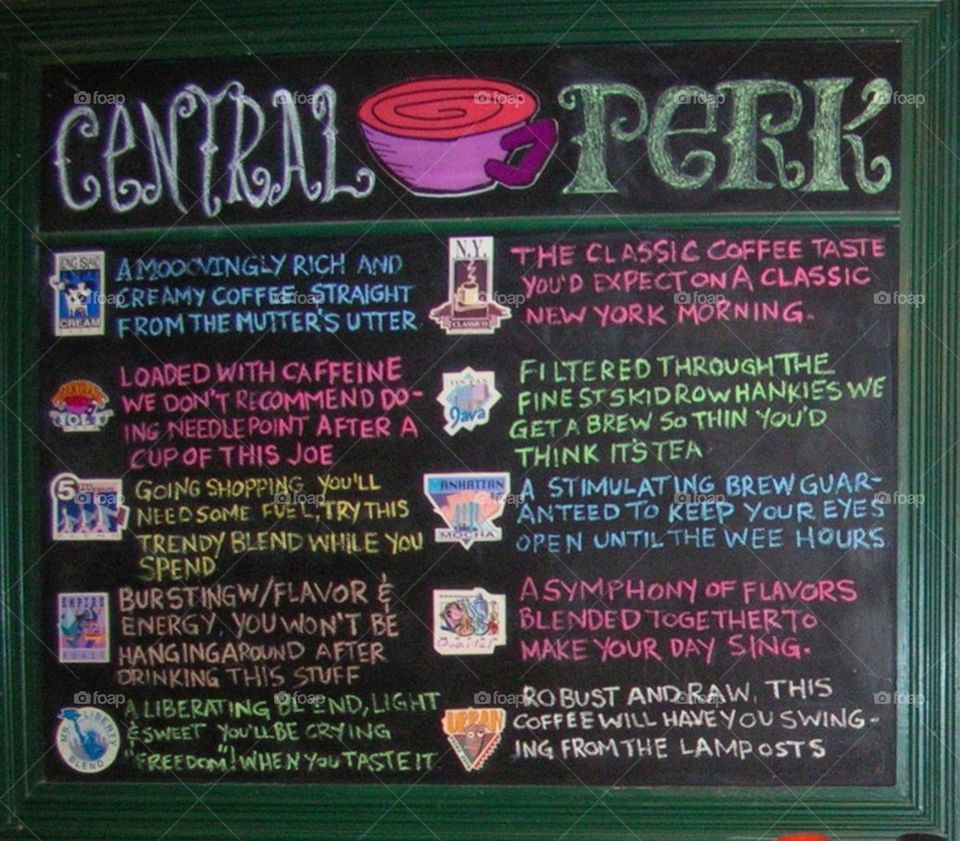 CENTRAL PERK
LONG ISLAND
CREAM
A MOOOVINGLY RICH AND
CREAMY COFFEE STRAIGHT
FROM THE MUTTER'S UTTER
LOADED WITH CAFFEINE
WE DON'T RECOMMEND DO-
ING NEEDLEPOINT AFTER A
CUP OF THIS JOE
5
GOING SHOPPING YOU'LL
NEED SOME FUEL, TRY THIS
TRENDY BLEND WHILE YOU
SPEND
EMPIRE
BURSTING W/FLAVOR &
ENERGY, YOU WON'T BE
HANGING AROUND AFTER
DRINKING THIS STUFF
MS. LIBERTY
BLEND
A LIBERATING BLEND, LIGHT
& SWEET YOU'LL BE CRYING
"FREEDOM"! WHEN YOU TASTE IT
N.Y.
CLASSICO
THE CLASSIC COFFEE TASTE
YOU'D EXPECT ON A CLASSIC
NEW YORK MORNING.
Java
FILTERED THROUGH THE
FINEST SKID ROW HANKIES WE
GET A BREW SO THIN YOU'D
THINK IT'S TEA
MANHATTAN
MOCHA
A STIMULATING BREW GUAR-
ANTEED TO KEEP YOUR EYES
OPEN UNTIL THE WEE HOURS
A SYMPHONY OF FLAVORS
BLENDED TOGETHER TO
MAKE YOUR DAY SING.
URBAN
ROBUST AND RAW, THIS
COFFEE WILL HAVE YOU SWING-
ING FROM THE LAMPOSTS
foap